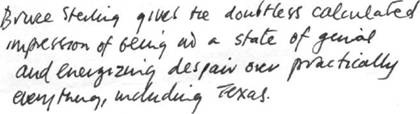 Bruce Sterling gives the doubtless calculated
impression of being in a state of genial
and energizing despair over practically
everything, including Texas.